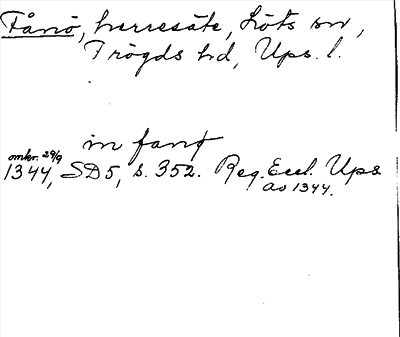 Fånö, herresäte, Löts sn,
Trögds hd, Ups. l.
in fanø
omkr. 29/9
1344, SD5, s. 352. Reg. Eccl. Ups
av 1344.